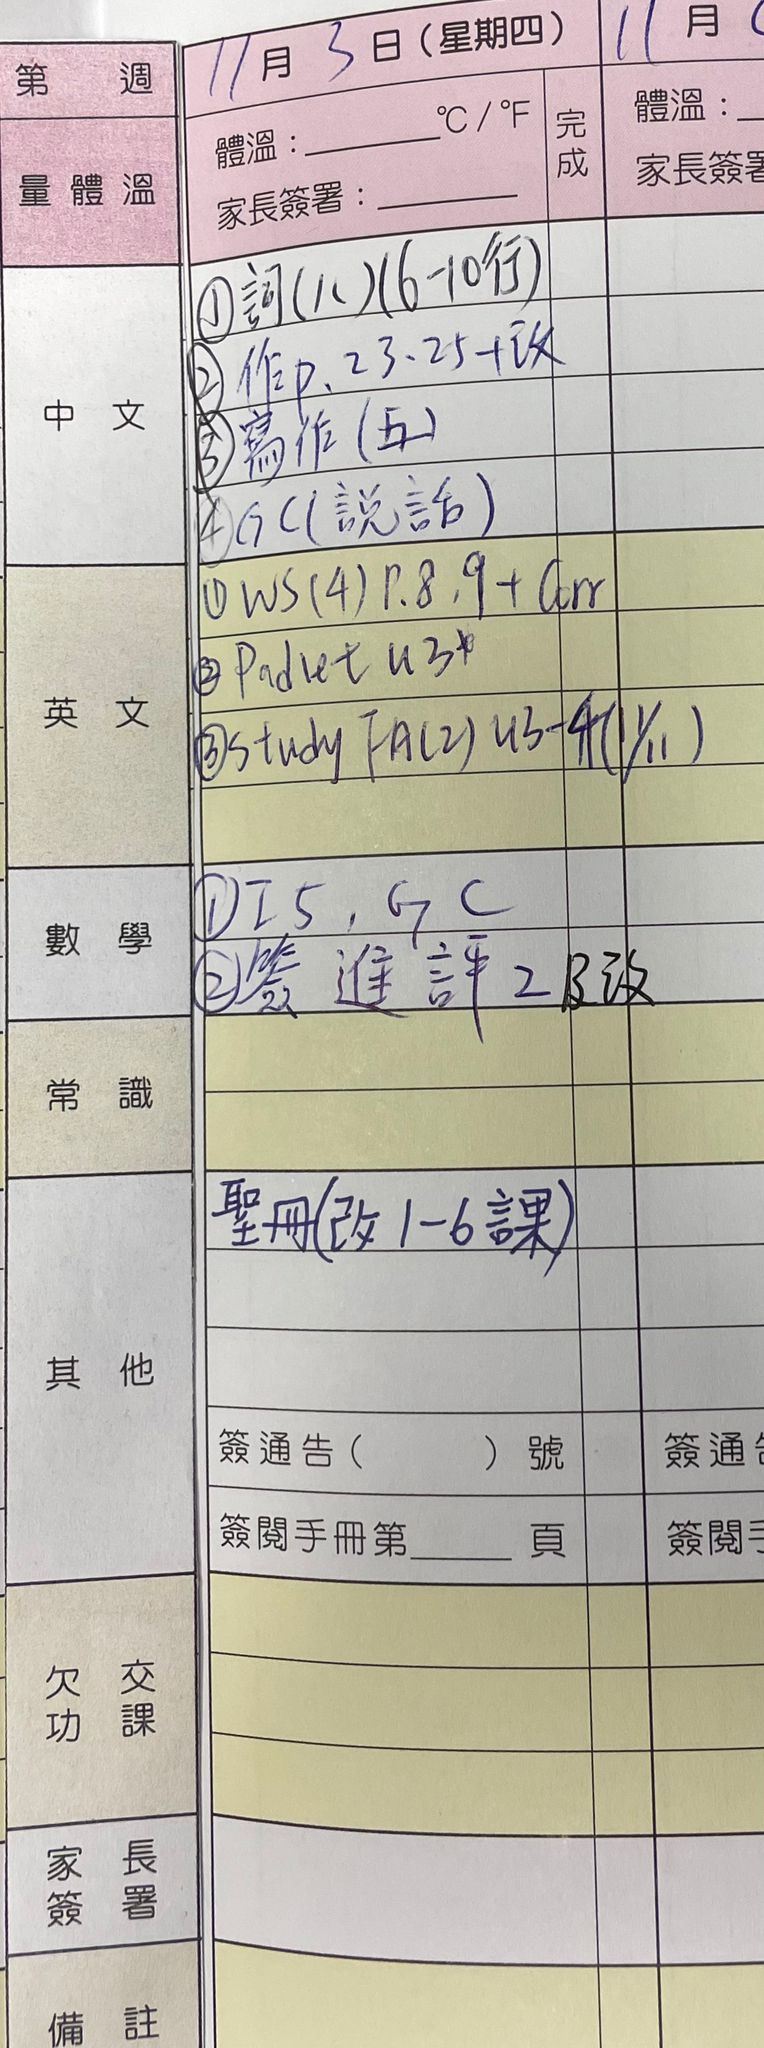 第 週
11月3日(星期四)
11月
量體溫
體溫:______℃/℉
家長簽署:______
完成
體溫:
家長簽署
中文
①詞(八)(6-10行)
②作p.23-25+改
③寫作(五)
④GC(說話)
英文
①WS(4) P.8,9+Corr
②Padlet U3*
③Study FA(2) U3-4(11/11)
數學
①I5,GC
②簽進評2及改
常識
其他
聖冊(改1-6課)
簽通告( )號
簽通告
簽閱手冊第______頁
簽閱手
欠交功課
家長簽署
備註